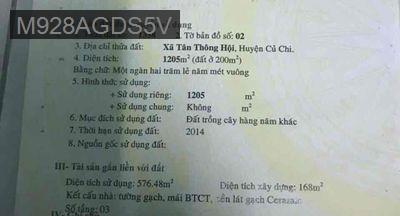 M928AGDS5V
dụng
2. Tờ bản đồ số: 02
3. Địa chỉ thửa đất: Xã Tân Thông Hội, Huyện Củ Chi.
4. Diện tích: 1205m² (đất ở 200m²)
Bằng chữ: Một ngàn hai trăm lẻ năm mét vuông
5. Hình thức sử dụng:
+ Sử dụng riêng: 1205 m²
+ Sử dụng chung: Không m²
6. Mục đích sử dụng đất: Đất trồng cây hàng năm khác
7. Thời hạn sử dụng đất: 2014
8. Nguồn gốc sử dụng đất:
III- Tài sản gắn liền với đất
Diện tích sử dụng: 576.48m² Diện tích xây dựng: 168m²
Kết cấu nhà: tường gạch, mái BTCT, nền lát gạch
Số tầng: 03